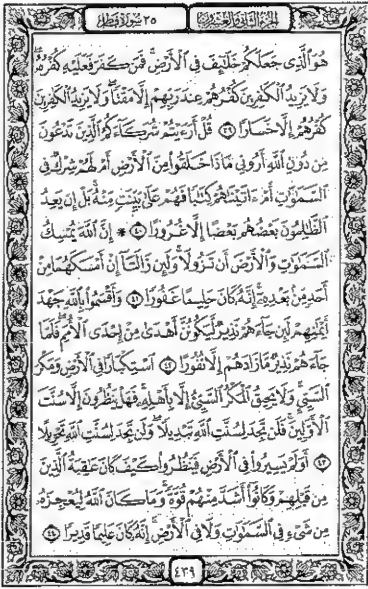 الجزء الثاني والعشرون
٣٥ سورة فاطر
هُوَ الَّذِي جَعَلَكُمْ خَلَٰٓئِفَ فِي الْأَرْضِ ۚ فَمَن كَفَرَ فَعَلَيْهِ كُفْرُهُ ۖ
وَلَا يَزِيدُ الْكَٰفِرِينَ كُفْرُهُمْ عِندَ رَبِّهِمْ إِلَّا مَقْتًا ۖ وَلَا يَزِيدُ الْكَٰفِرِينَ
كُفْرُهُمْ إِلَّا خَسَارًا ﴿٣٩﴾ قُلْ أَرَءَيْتُمْ شُرَكَآءَكُمُ الَّذِينَ تَدْعُونَ
مِن دُونِ اللَّهِ أَرُونِي مَاذَا خَلَقُوا مِنَ الْأَرْضِ أَمْ لَهُمْ شِرْكٌ فِي
السَّمَٰوَٰتِ أَمْ ءَاتَيْنَٰهُمْ كِتَٰبًا فَهُمْ عَلَىٰ بَيِّنَتٍ مِّنْهُ ۚ بَلْ إِن يَعِدُ
الظَّٰلِمُونَ بَعْضُهُم بَعْضًا إِلَّا غُرُورًا ﴿٤٠﴾ * إِنَّ اللَّهَ يُمْسِكُ
السَّمَٰوَٰتِ وَالْأَرْضَ أَن تَزُولَا ۚ وَلَئِن زَالَتَآ إِنْ أَمْسَكَهُمَا مِنْ
أَحَدٍ مِّنۢ بَعْدِهِ ۚ إِنَّهُ كَانَ حَلِيمًا غَفُورًا ﴿٤١﴾ وَأَقْسَمُوا بِاللَّهِ جَهْدَ
أَيْمَٰنِهِمْ لَئِن جَآءَهُمْ نَذِيرٌ لَّيَكُونُنَّ أَهْدَىٰ مِنْ إِحْدَى الْأُمَمِ ۖ فَلَمَّا
جَآءَهُمْ نَذِيرٌ مَّا زَادَهُمْ إِلَّا نُفُورًا ﴿٤٢﴾ اسْتِكْبَارًا فِي الْأَرْضِ وَمَكْرَ
السَّيِّئِ ۚ وَلَا يَحِيقُ الْمَكْرُ السَّيِّئُ إِلَّا بِأَهْلِهِ ۚ فَهَلْ يَنظُرُونَ إِلَّا سُنَّتَ
الْأَوَّلِينَ ۚ فَلَن تَجِدَ لِسُنَّتِ اللَّهِ تَبْدِيلًا ۖ وَلَن تَجِدَ لِسُنَّتِ اللَّهِ تَحْوِيلًا
﴿٤٣﴾ أَوَلَمْ يَسِيرُوا فِي الْأَرْضِ فَيَنظُرُوا كَيْفَ كَانَ عَٰقِبَةُ الَّذِينَ
مِن قَبْلِهِمْ وَكَانُوٓا أَشَدَّ مِنْهُمْ قُوَّةً ۚ وَمَا كَانَ اللَّهُ لِيُعْجِزَهُ
مِن شَيْءٍ فِي السَّمَٰوَٰتِ وَلَا فِي الْأَرْضِ ۚ إِنَّهُ كَانَ عَلِيمًا قَدِيرًا ﴿٤٤﴾
٤٣٩